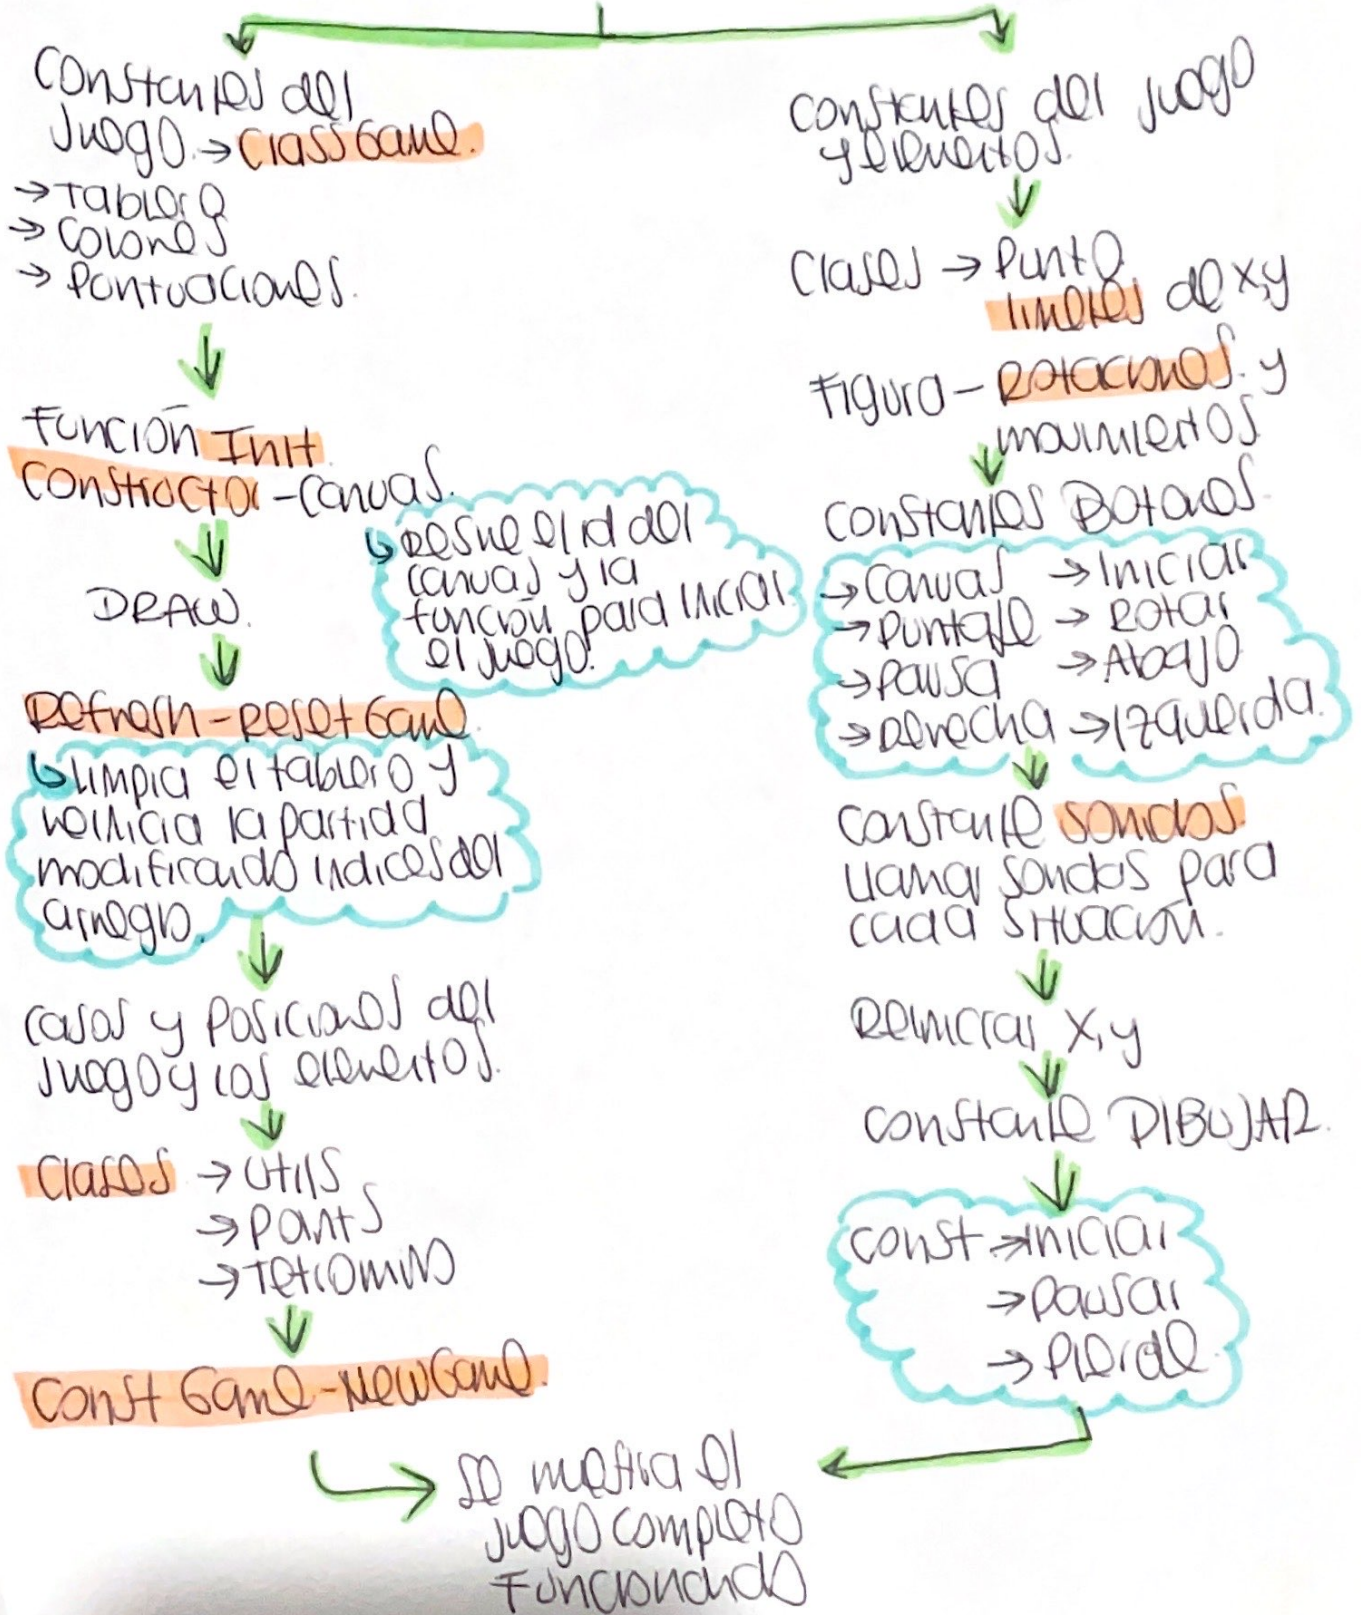 Constantes del
Juego. → Class Game.
→ Tablero
→ Colores
→ Puntuaciones.
Función Init
Constructor - Canvas.
↳ Resive el id del
canvas y la
función para iniciar
el juego.
DRAW.
Refresh - Reset Game.
↳ Limpia el tablero y
reinicia la partida
modificando indices del
arreglo.
Casos y Posiciones del
Juego y los elementos.
Clases → Utils
→ Points
→ Tetromino
Const Game - New Game.
Constantes del Juego
y elementos.
Clases → Punto
limetes de x,y
Figura - Rotaciones. y
movimientos.
Constantes Botones.
→ Canvas → Iniciar
→ Puntaje → Rotar
→ Pausa → Abajo
→ Derecha → Izquierda.
Constante sonidos
llamar sonidos para
cada situación.
Reiniciar X,y
Constante DIBUJAR.
Const → Iniciar
→ Pausar
→ Pierde.
Se mestra el
juego completo
Funcionando